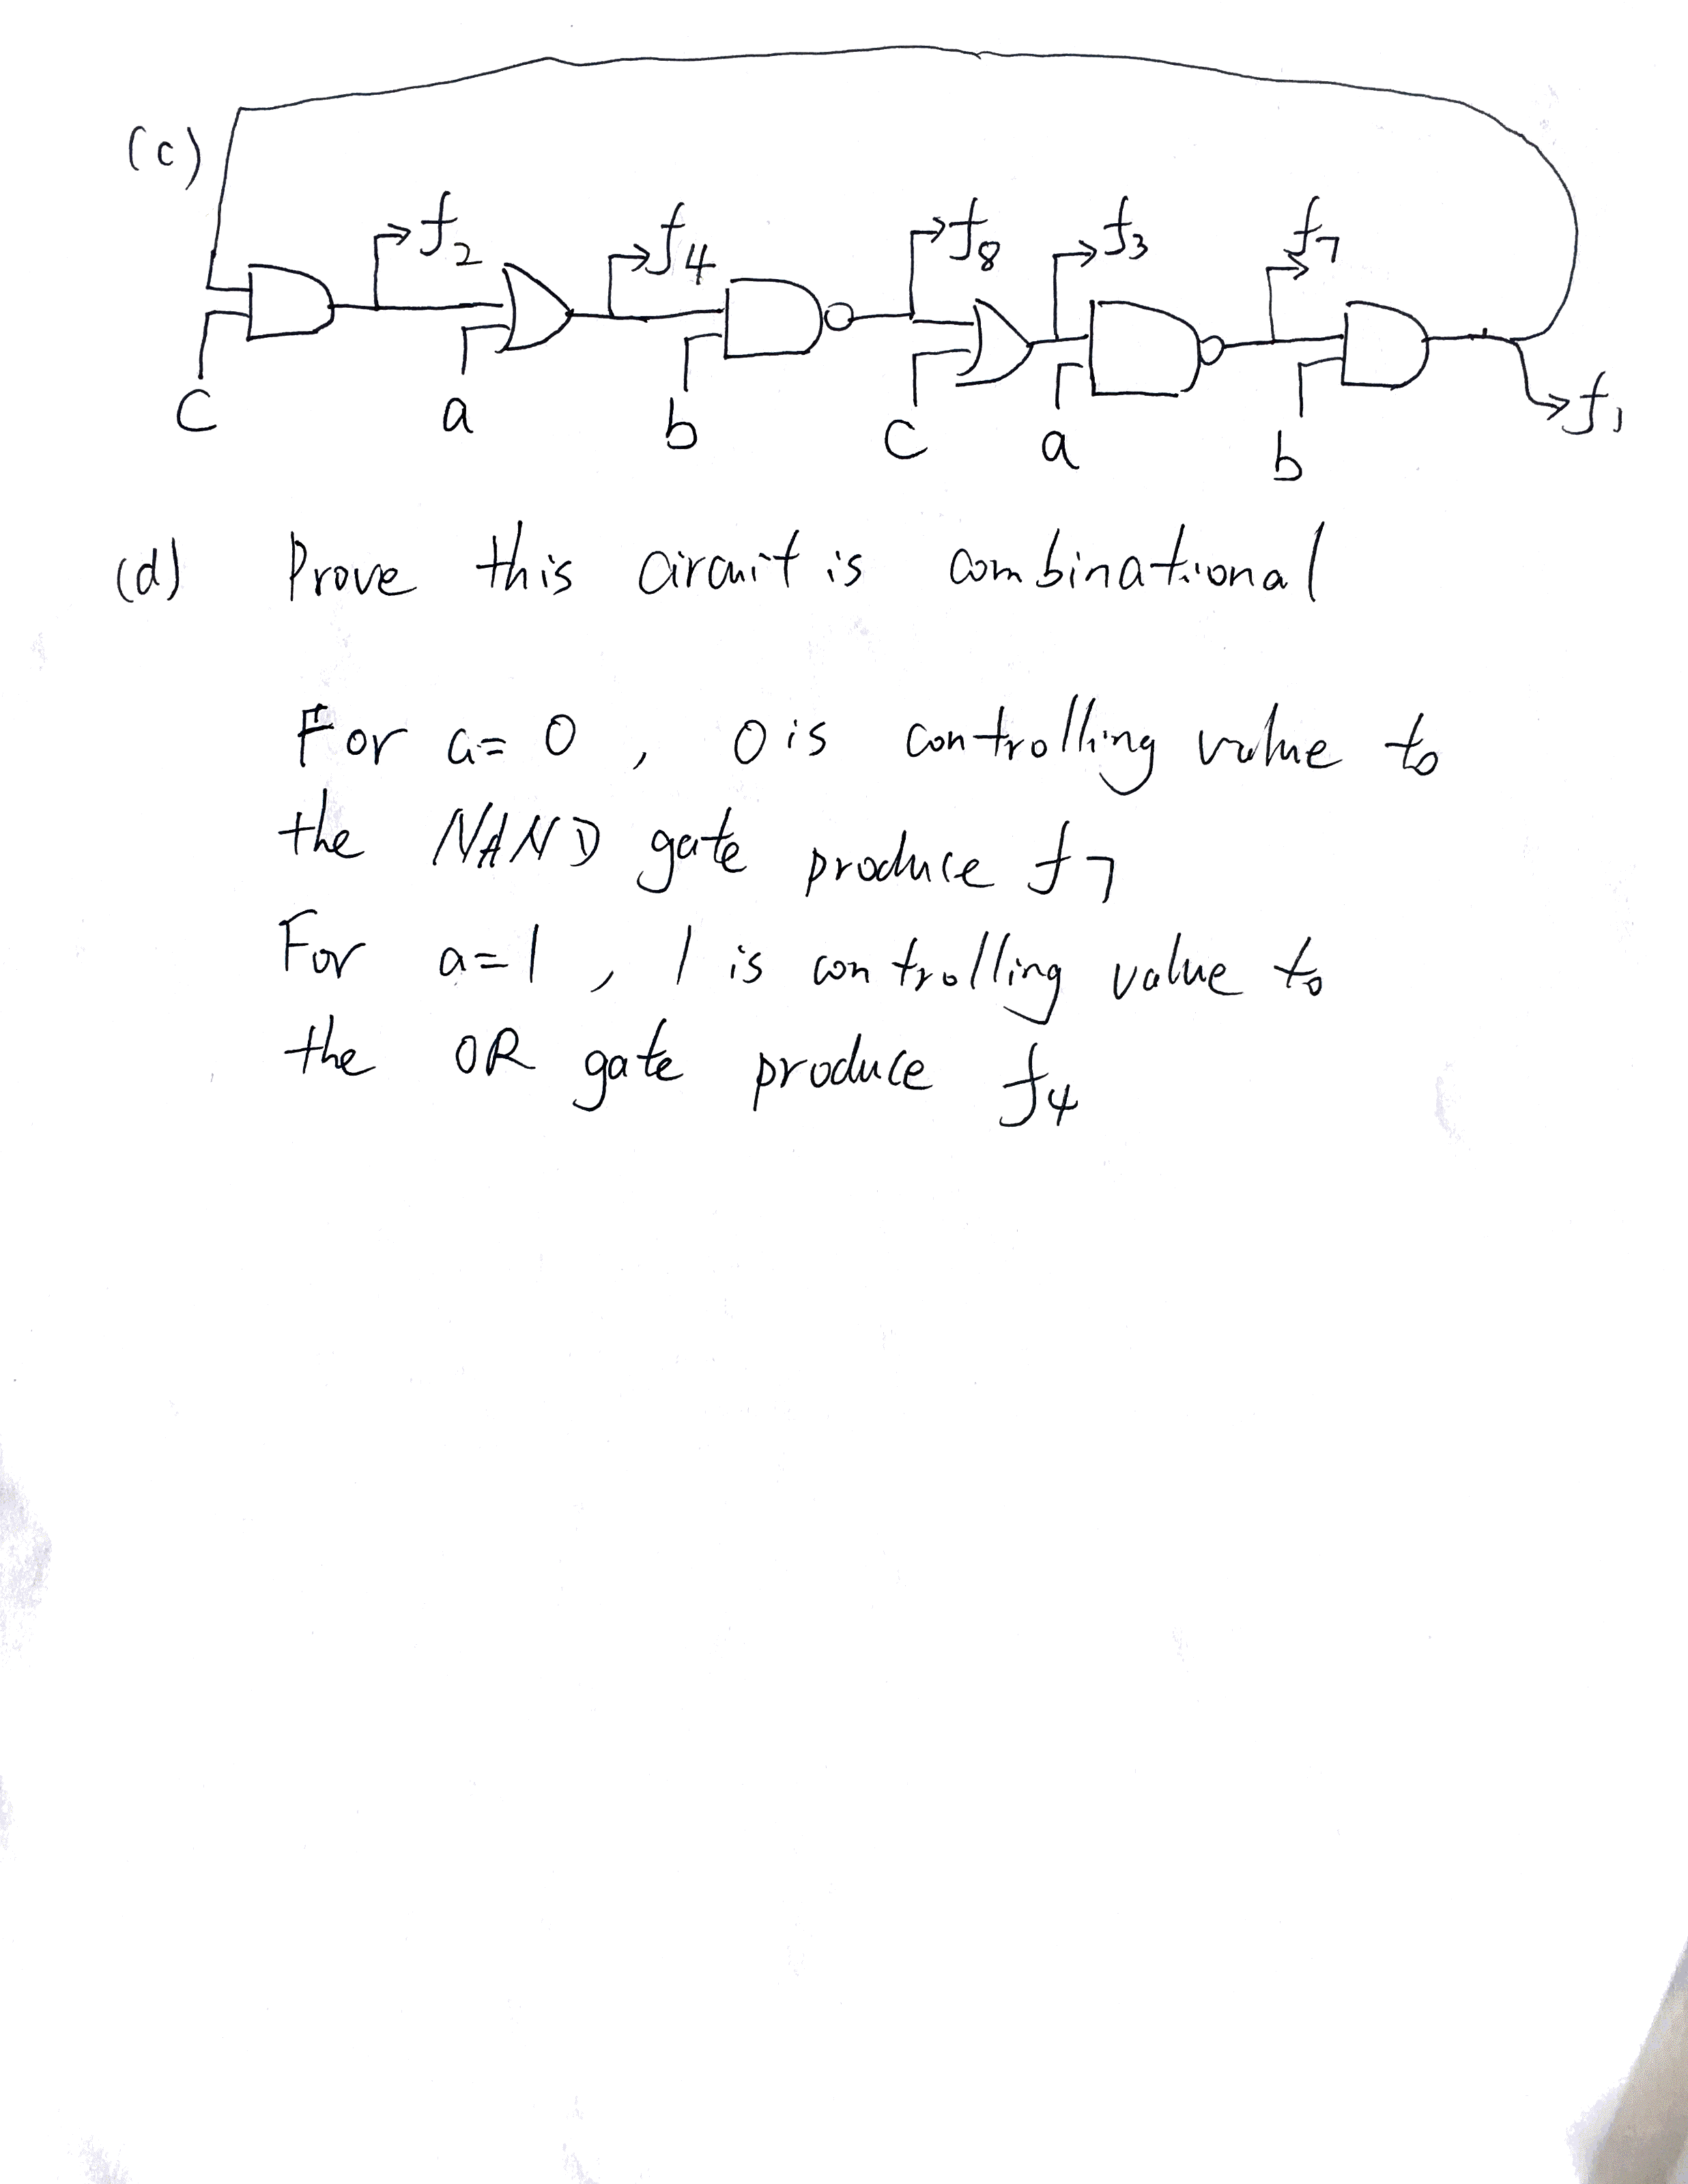 (c)
f2 f4 f8 f3 f7
c a b c a b f1
(d) Prove this circuit is combinational
For a= 0 , 0 is controlling value to
the NAND gate produce f7
For a=1 , 1 is controlling value to
the OR gate produce f4